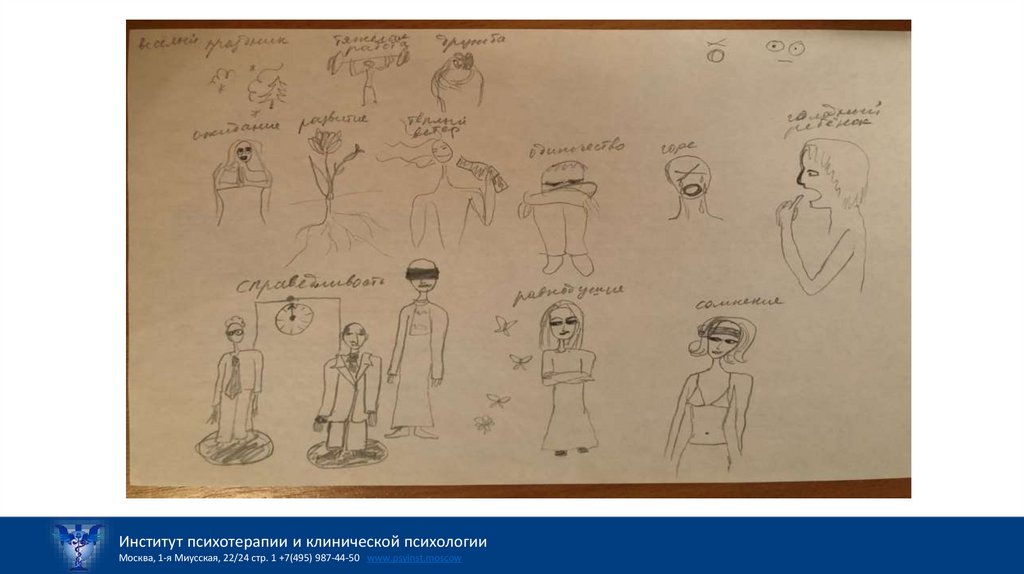 весёлый праздник
тяжелая
работа
дружба
ожидание
развитие
тёплый
ветер
одиночество
горе
голодный
ребёнок
справедливость
равнодушие
сомнение
Институт психотерапии и клинической психологии
Москва, 1-я Миусская, 22/24 стр. 1 +7(495) 987-44-50 www.psyinst.moscow